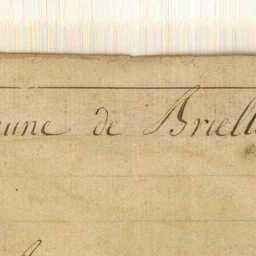 une de Briell